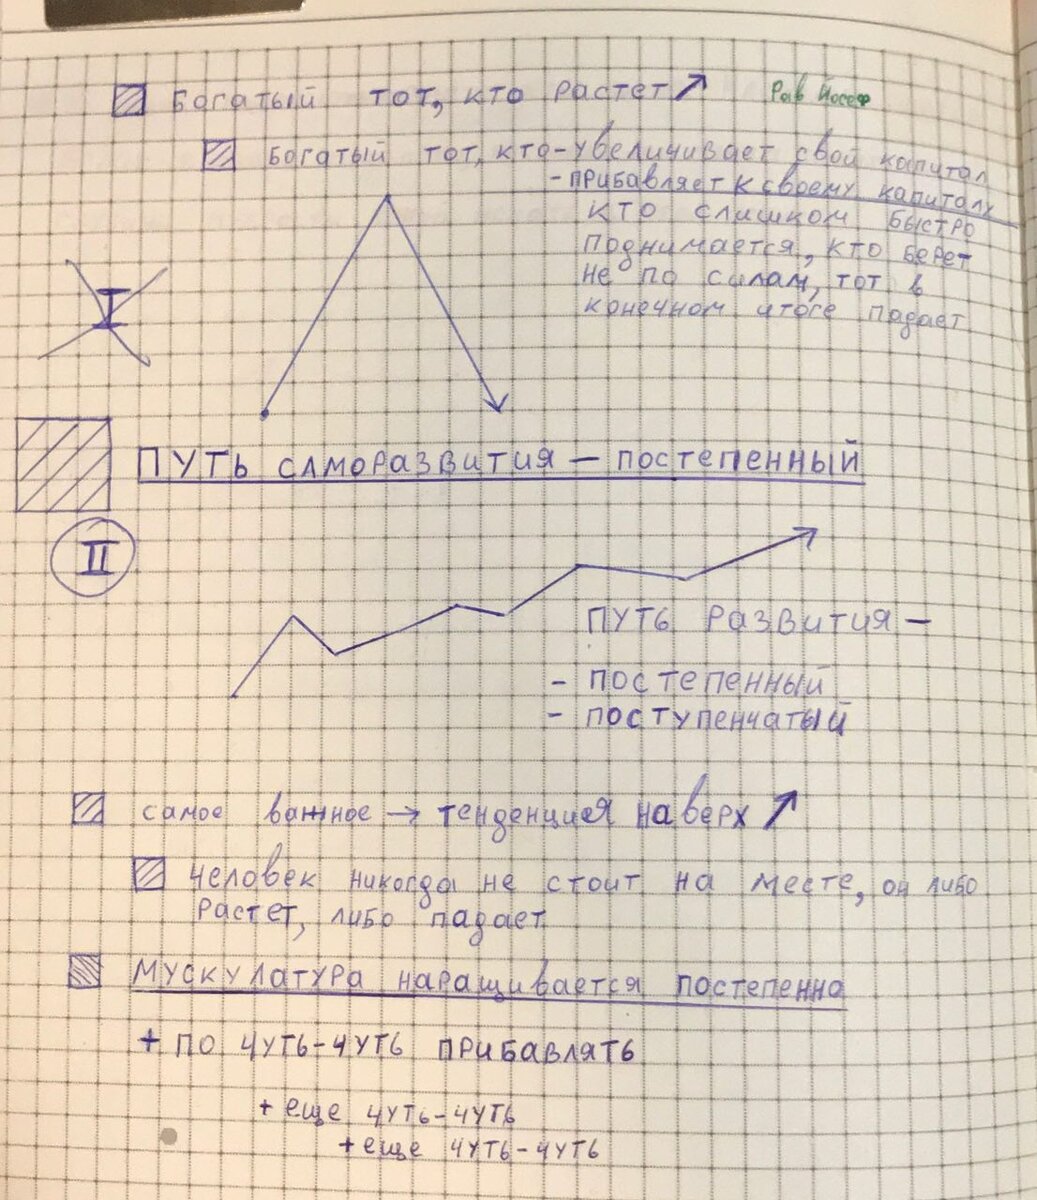 Богатый тот, кто растет
Рав Йосеф
Богатый тот, кто - увеличивает свой капитал
- прибавляет к своему капиталу
кто слишком быстро
поднимается, кто берет
не по силам, тот в
конечном итоге падает
I
ПУТЬ САМОРАЗВИТИЯ — ПОСТЕПЕННЫЙ
II
ПУТЬ РАЗВИТИЯ —
- ПОСТЕПЕННЫЙ
- ПОСТУПЕНЧАТЫЙ
самое важное → тенденция наверх
человек никогда не стоит на месте, он либо
растет, либо падает
Мускулатура наращивается постепенно
+ по чуть-чуть прибавлять
+ еще чуть-чуть
+ еще чуть-чуть